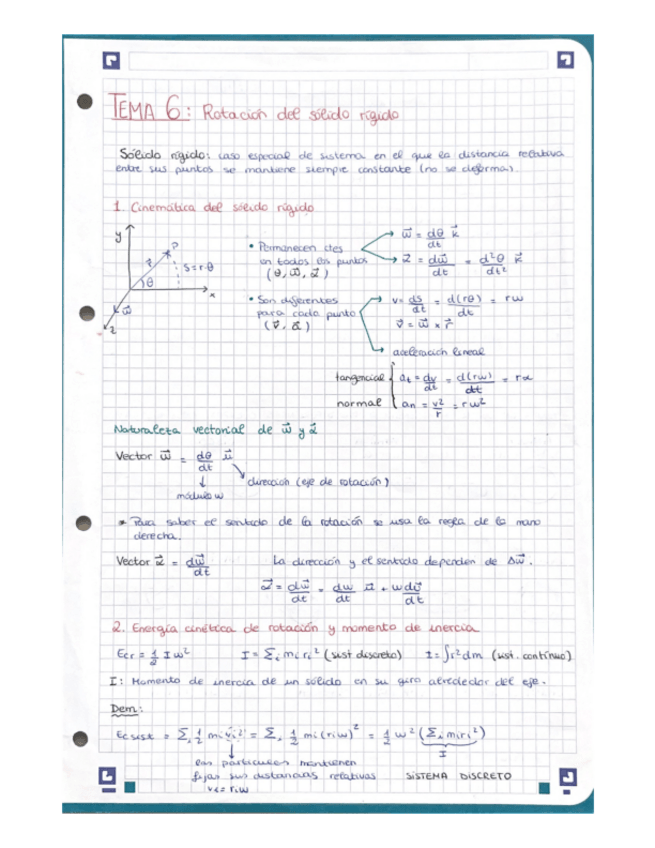 TEMA 6: Rotación del sólido rígido
Sólido rígido: caso especial de sistema en el que la distancia relativa
entre sus puntos se mantiene siempre constante (no se deforma).
1. Cinemática del sólido rígido
y
P
r⃗
S=r·θ
θ
x
ω⃗
z
• Permanecen ctes
en todos los puntos
(θ, ω⃗, α⃗)
ω⃗ = dθ/dt k⃗
α⃗ = dω⃗/dt = d²θ/dt² k⃗
• Son diferentes
para cada punto
(v⃗, a⃗)
v = ds/dt = d(rθ)/dt = rω
v⃗ = ω⃗ × r⃗
aceleración lineal
tangencial at = dv/dt = d(rω)/dt = rα
normal an = v²/r = rω²
Naturaleza vectorial de ω⃗ y α⃗
Vector ω⃗ = dθ/dt u⃗
dirección (eje de rotación)
módulo ω
* Para saber el sentido de la rotación se usa la regla de la mano
derecha.
Vector α⃗ = dω⃗/dt La dirección y el sentido dependen de Δω⃗.
α⃗ = dω⃗/dt = dω/dt u⃗ + ω du⃗/dt
2. Energía cinética de rotación y momento de inercia
Ecr = 1/2 I ω² I = Σi mi ri² (sist discreto) I = ∫r² dm (sist. continuo)
I: Momento de inercia de un sólido en su giro alrededor del eje.
Dem:
Ec sist = Σi 1/2 mi vi² = Σi 1/2 mi (ri ω)² = 1/2 ω² (Σi mi ri²)
I
las partículas mantienen
fijas sus distancias relativas SISTEMA DISCRETO
vi = ri ω